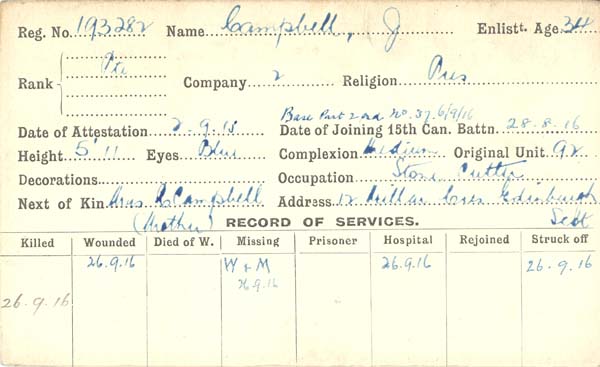 Reg. No. 193282 Name Campbell, J Enlistt. Age 34
Rank Pte Company 2 Religion Pres
Base Part 2 Ord No. 37. 6/9/16
Date of Attestation 2.9.15 Date of Joining 15th Can. Battn. 28.8.16
Height 5' 11 Eyes Blue Complexion Medium Original Unit 92
Decorations Occupation Stone Cutter
Next of Kin Campbell Address 12 Cres Edinburgh
(Mother) Scot
RECORD OF SERVICES.
Killed Wounded Died of W. Missing Prisoner Hospital Rejoined Struck off
26.9.16 W & M 26.9.16 26.9.16
26.9.16
26.9.16